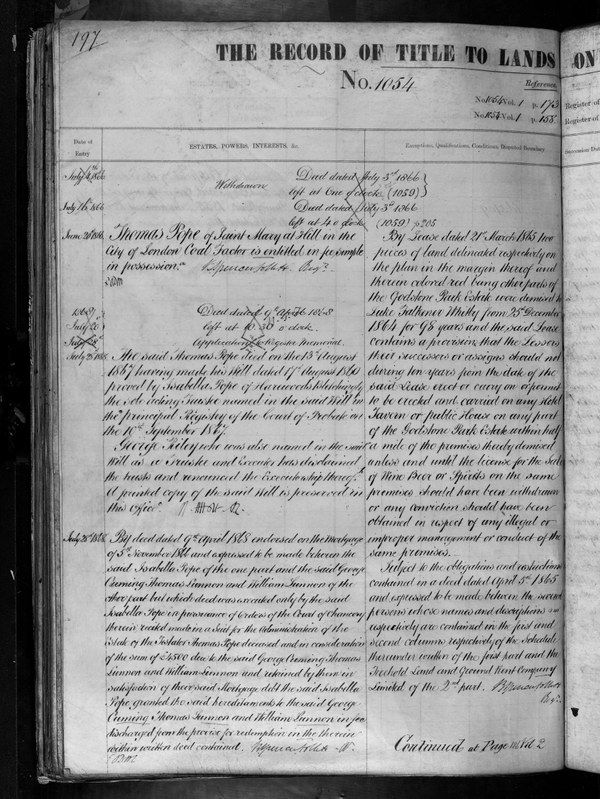 197
THE RECORD OF TITLE TO LANDS
ON
No. 1054
Reference
No. 1054 Vol. 1 p. 173
No. 1054 Vol. 1 p. 155
Register of
Register of
Date of
Entry
ESTATES, POWERS, INTERESTS, &c.
Exceptions, Qualifications, Conditions, Disputed Boundary
Succession Duty
July 1866
Withdrawn
Deed dated July 3rd 1866
left at One o'clock (1059)
July 1866
Deed dated July 3rd 1866
left at 4 o'clock (1059) p205
June 1866
Thomas Pope of Saint Mary at Hill in the
City of London Coal Factor is entitled in fee simple
in possession.
1868
July 20
Deed dated 9th April 1868
left at o'clock.
Application to Register Memorial.
July 28 1868
The said Thomas Pope died on the 13th August
1867 having made his Will dated 17th August
proved by Isabella Pope of
the sole acting Executrix named in the said Will in
the principal Registry of the Court of Probate on
the 10th September 1867.
George Riley who was also named in the said
Will as a Trustee and Executor has disclaimed
the trusts and renounced the Executorship thereof.
A printed copy of the said Will is preserved in
this office.
July 28 1868
By deed dated 9th April 1868 endorsed on the Mortgage
of 5th November 1866 and expressed to be made between the
said Isabella Pope of the one part and the said George
Cuming Thomas Lunnon and William Lunnon of the
other part but which deed was executed only by the said
Isabella Pope in pursuance of Orders of the Court of Chancery
therein recited made in a Suit for the Administration of the
Estate of the Testator Thomas Pope deceased and in consideration
of the sum of £4500 due to the said George Cuming Thomas
Lunnon and William Lunnon and retained by them in
satisfaction of their said Mortgage debt the said Isabella
Pope granted the said hereditaments to the said George
Cuming Thomas Lunnon and William Lunnon in fee
discharged from the proviso for redemption in the therein
within written deed contained.
By Lease dated 21st March 1865 two
pieces of land delineated respectively on
the plan in the margin thereof and
thereon colored red being other parts of
the Godstone Park Estate were demised to
Luke Fatherer from 25th December
1864 for 98 years and the said Lease
contains a provision that the Lessors
their successors or assigns should not
during ten years from the date of the
said Lease erect or carry on or permit
to be erected and carried on any Hotel
Tavern or public House on any part
of the Godstone Park Estate within half
a mile of the premises thereby demised
unless and until the license for the sale
of Wine Beer or Spirits on the same
premises should have been withdrawn
or any conviction should have been
obtained in respect of any illegal or
improper management or conduct of the
same premises.
Subject to the obligations and restrictions
contained in a deed dated April 5th 1865
and expressed to be made between the several
persons whose names and descriptions
respectively are contained in the first and
second columns respectively of the Schedule
thereunder written of the first part and the
Freehold Land and Ground Rent Company
Limited of the 2nd part.
Continued at Page Vol 2